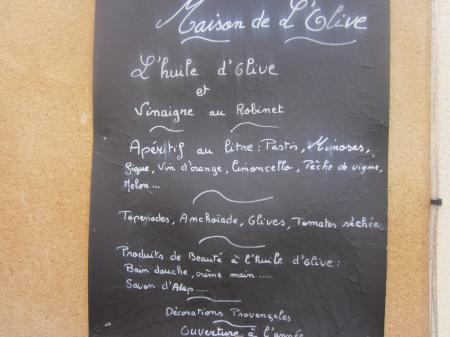 Maison de L'Olive
L'huile d'Olive
et
Vinaigre au Robinet
Apéritif au litre : Pastis, Mimosas,
Figue, Vin d'orange, Limoncello, Pêche de vigne,
Melon ...
Tapenades, Anchoïade, Olives, Tomates séchées
Produits de Beauté à l'huile d'Olive :
Bain douche, crème main .....
Savon d'Alep .....
Décorations Provençales
Ouverture à l'année